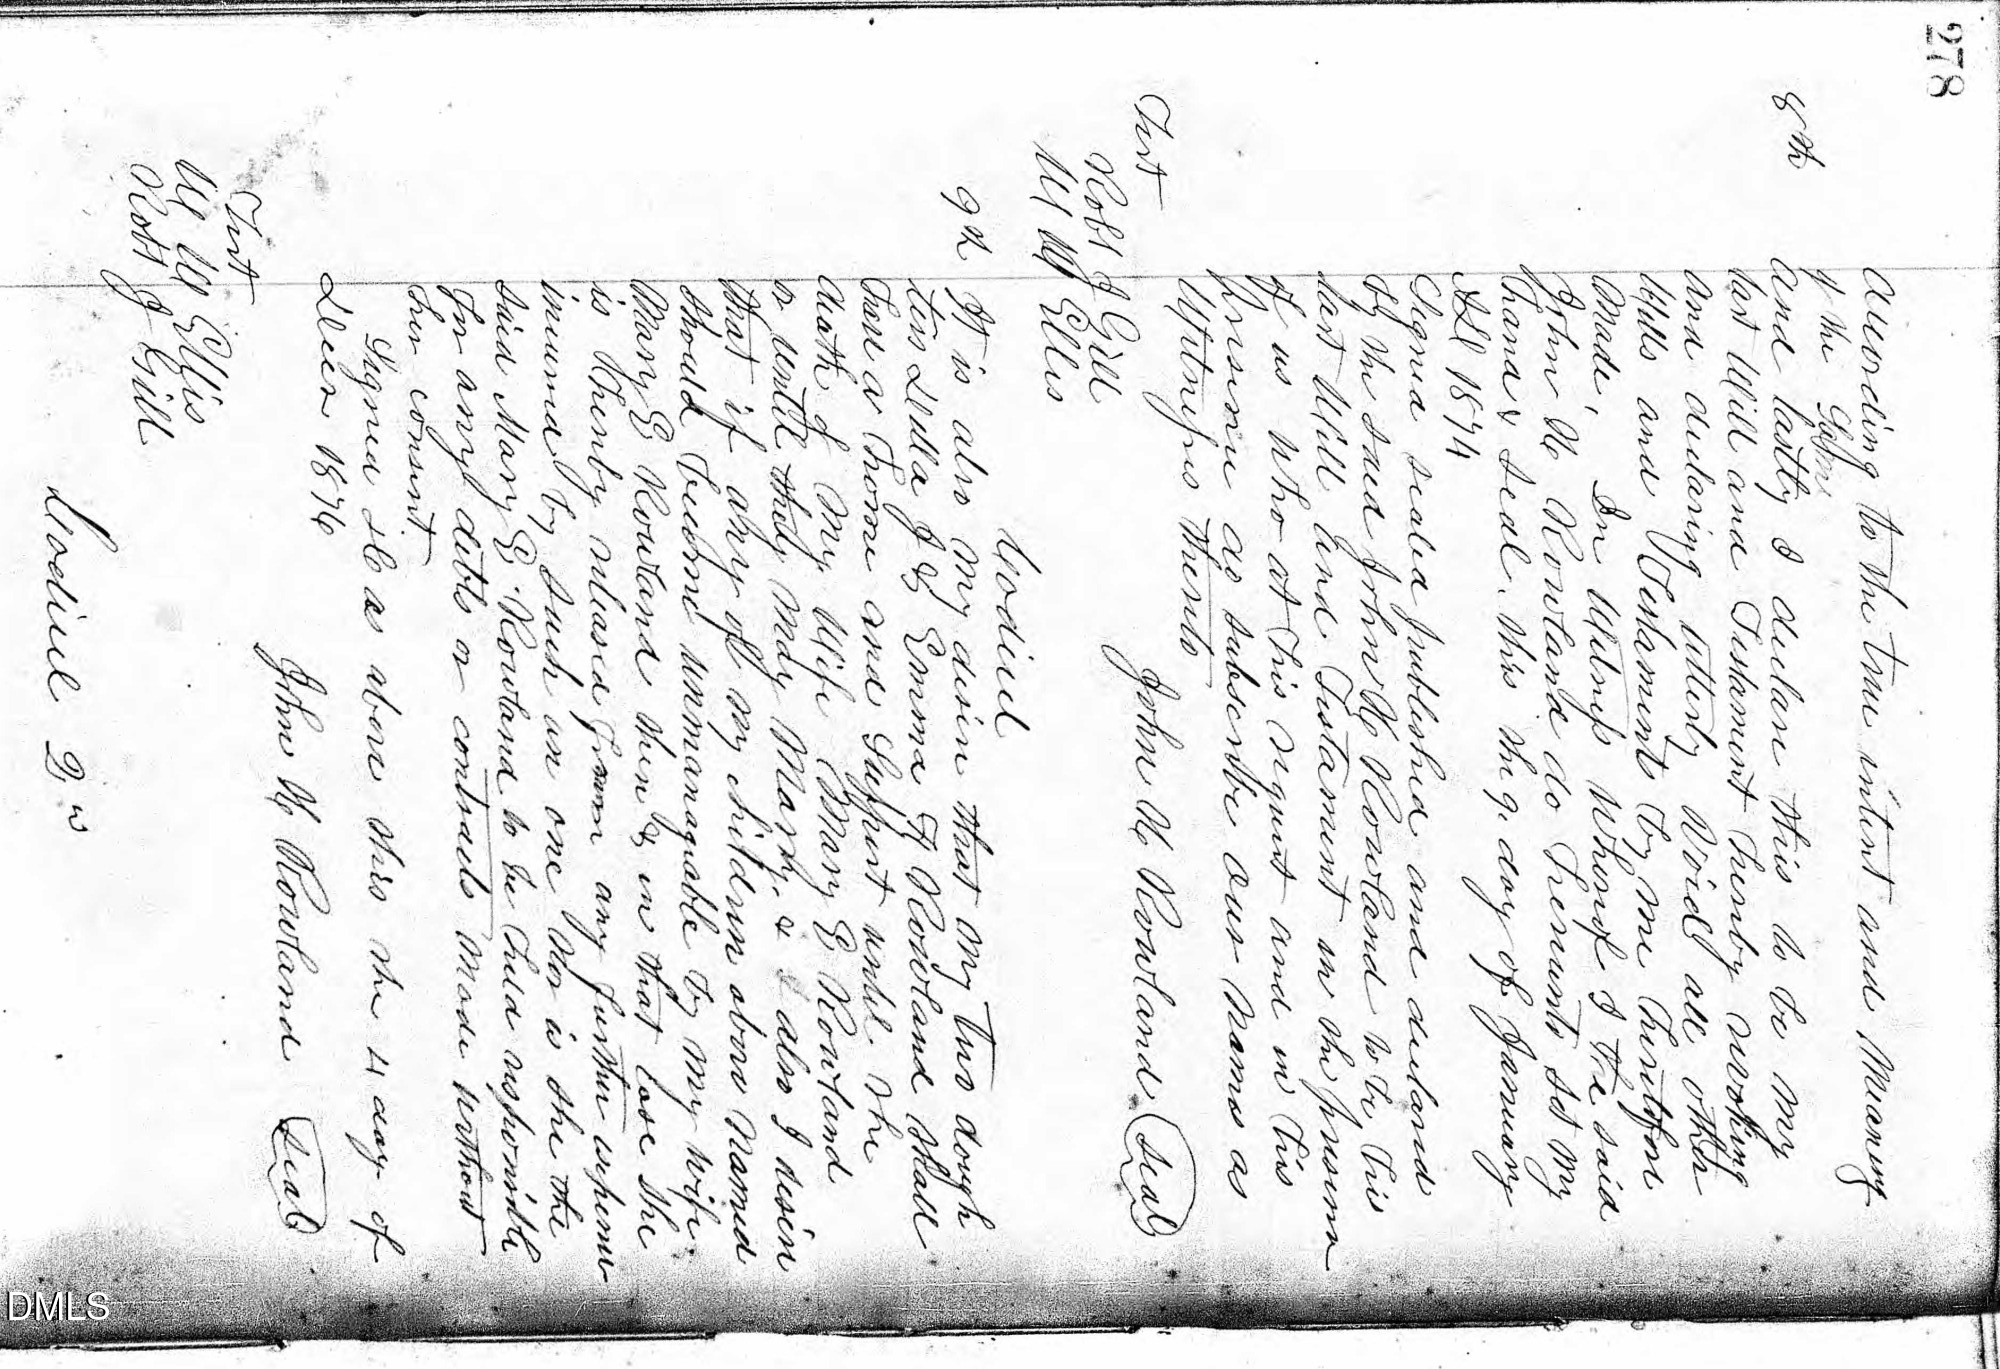 278
according to the true intent and Meaning
of the Same
8th And lastly I declare this to be my
last Will and Testament hereby revoking
and declaring utterly Void all other
Wills and Testaments by me heretofore
Made, In Witness Whereof I the said
John H Rowland do hereunto set my
hand & seal this the 9 day of January
AD 1874
Signed sealed published and declared
by the said John H Rowland to be his
last Will and Testament in the presence
of us Who at his request and in his
presence do subscribe our names as
Witnesses thereto
Test
John H Rowland (seal)
Robt J Gill
W W Ellis
Codicil
9th It is also my desire that my two daugh
ters Della J & Emma F Rowland shall
have a home and Support until the
death of My Wife Mary E Rowland
or until they may Marry. & I also I desire
that if any of my children above Named
should become unmanagable by my wife
Mary E Rowland then & in that case she
is thereby released from any further expense
incurred by such an one Nor is she the
said Mary E Rowland to be held responsible
for any debts or contracts Made without
her consent
Signed &c as above this the 4 day of
Decr 1876
John H Rowland (seal)
Test
W W Ellis
Robt J Gill
Codicil 2 is
DMLS